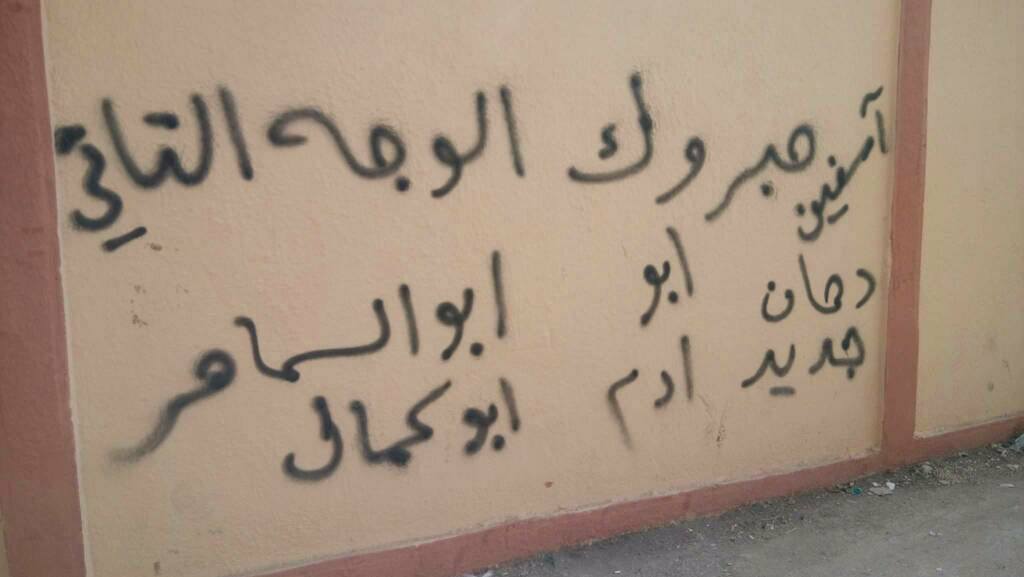 آسفين مبروك الوجه التاني
دهان ابو ابو السماهر
جديد ادم ابو كمال